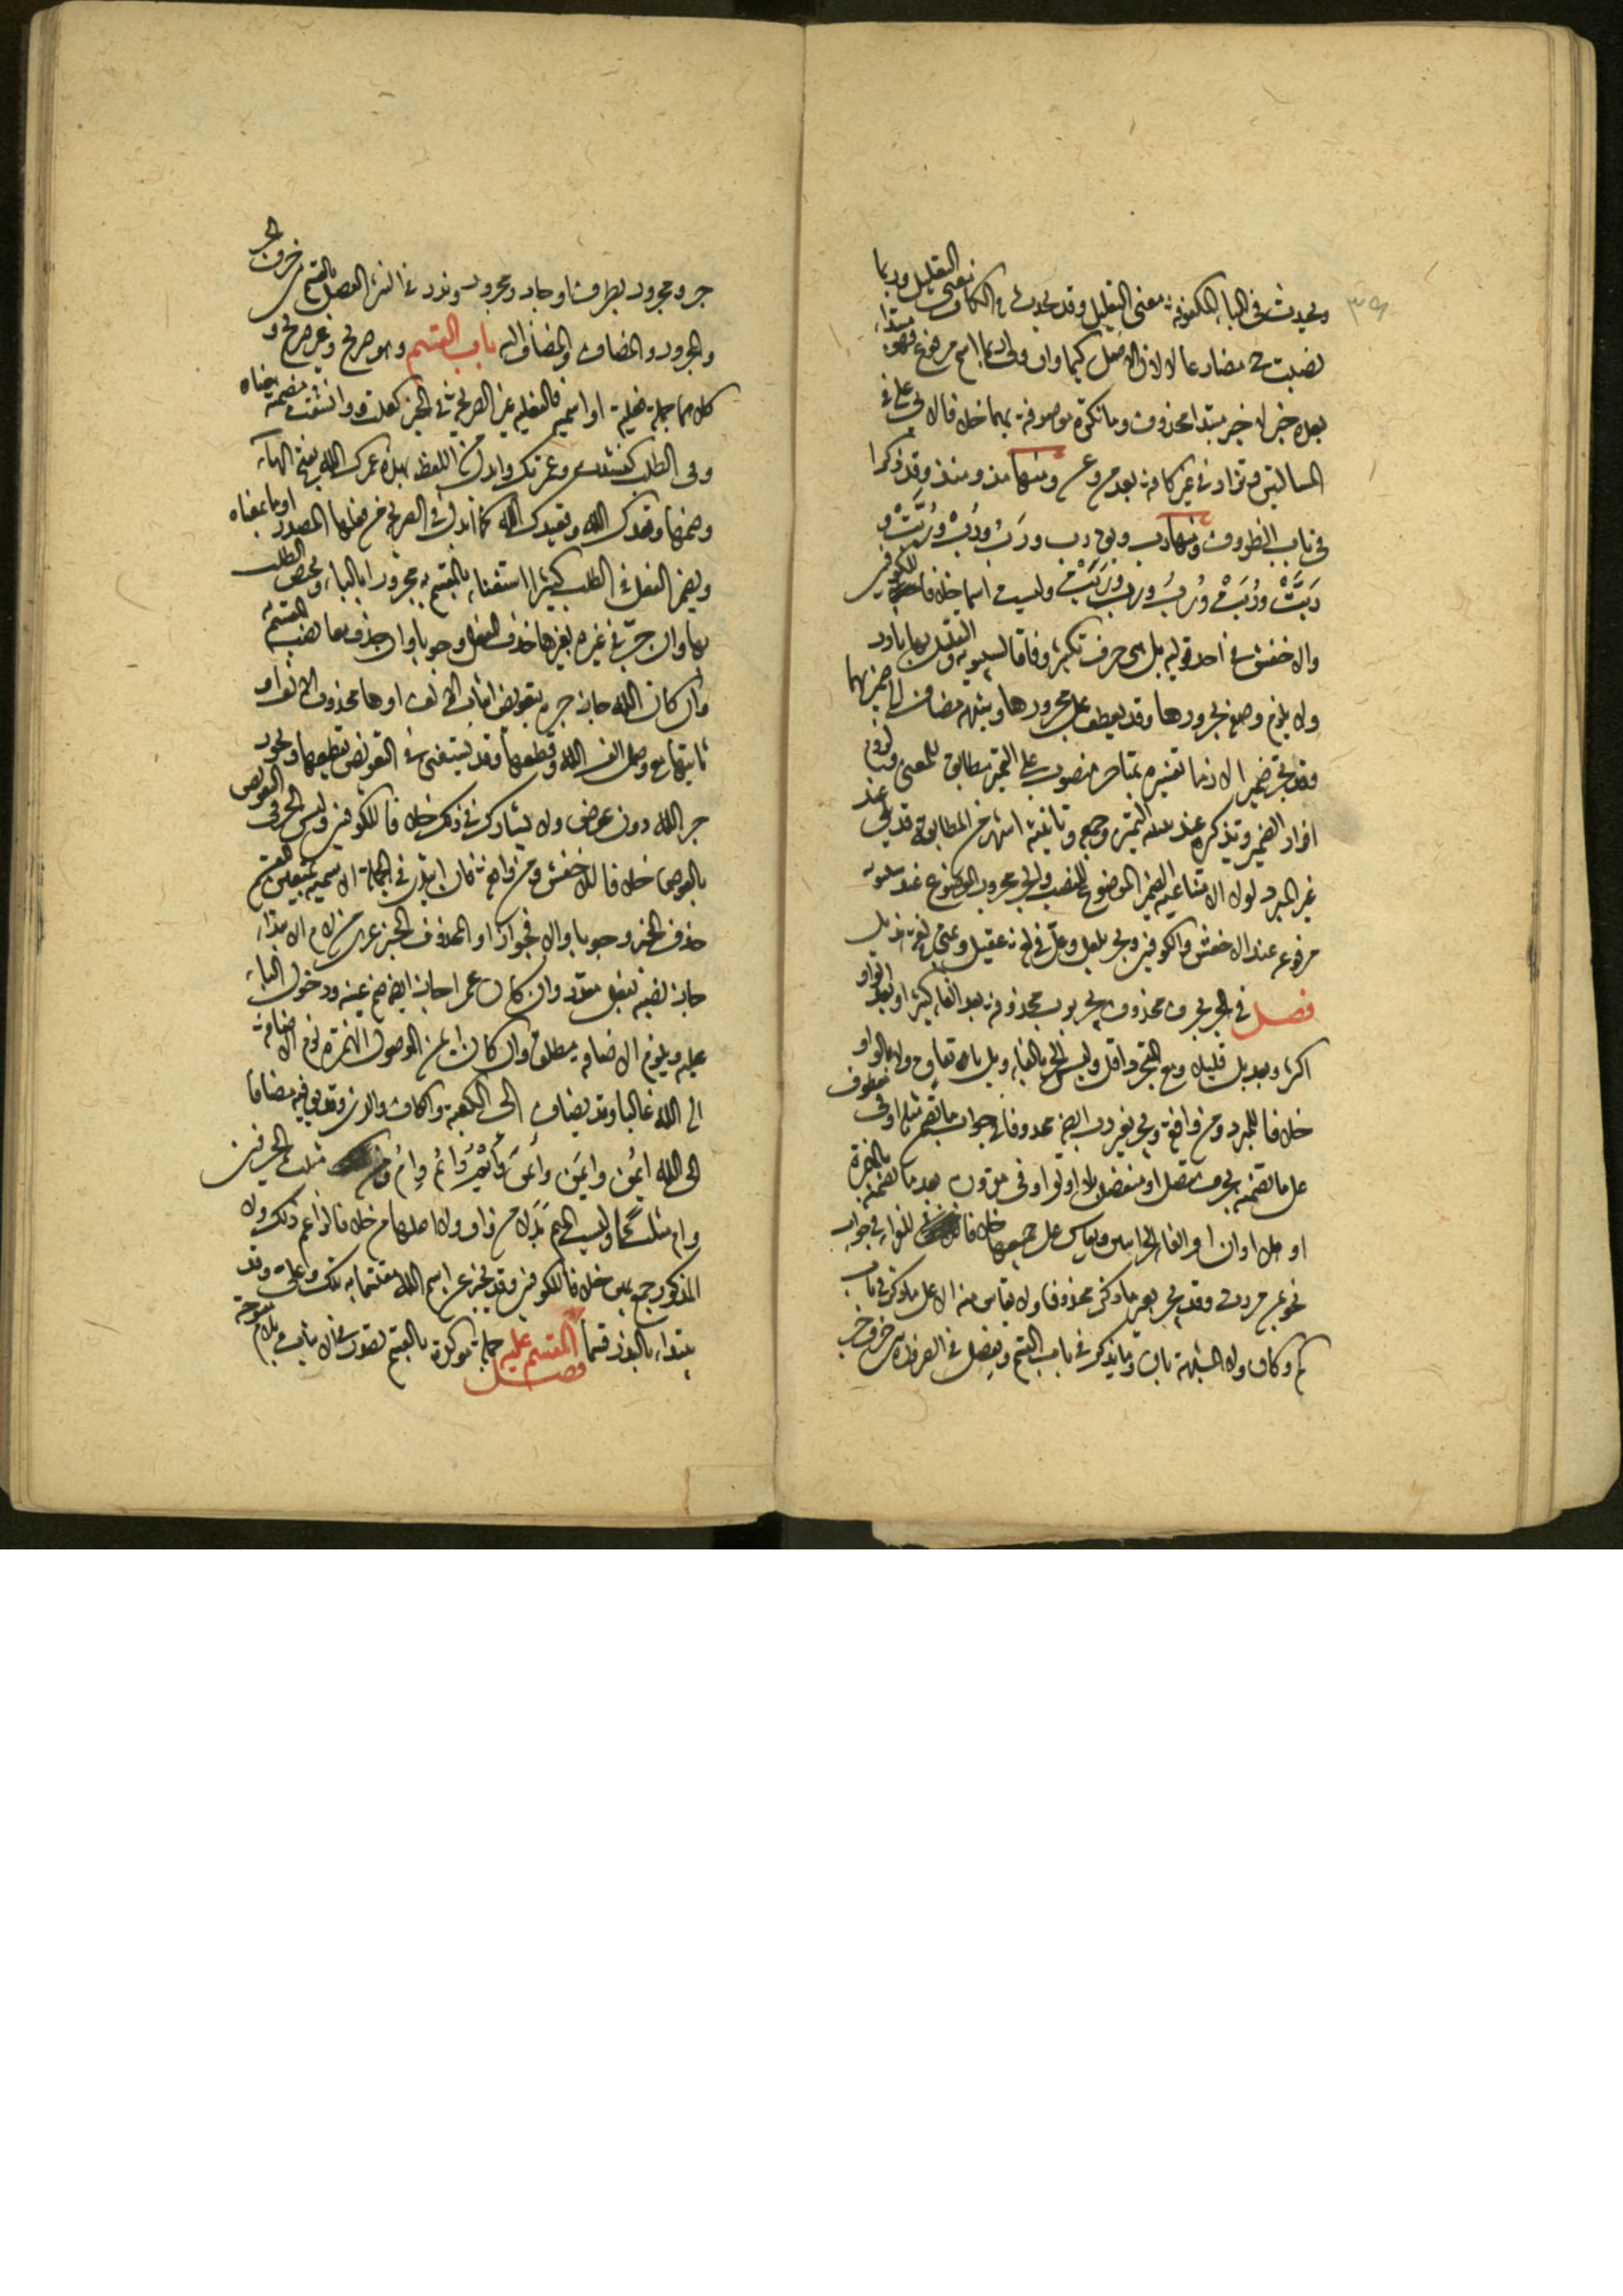 ويحدث في الباء المكفوفة معنى التقليل وقد يحدث في الكاف معنى التعليل وربما
نصبت ح مضارعا لا لان الاصل كيما وان ولى ربما اسم مرفوع فهو مبتدأ
بعده خبر لا خبر مبتدأ محذوف وما نكرة موصوفة بهما خلافا لابي علي في
المسالتين وتزاد في غير كافة بعد من وعن ومنها مذ ومنذ وقد ذكرا
في باب الظروف ومنها رب ويق رب ورب ورب وربت و
ربت وربت ورب ورب وربت وليست اسما خلافا للكوفيين
والاخفش في احد قوليه بل هي حرف تكثير وفاقا لسيبويه والتقليل بها نادر
ولا يلزم وصف مجرورها وقد يعطف على مجرورها وشبهه مضاف الى ضميريهما
وقد تجر ضميرا لازما تفسيره بمتاخر منصوب على التمييز مطابق للمعنى ولزوم
افراد الضمير وتذكيره عند تثنية التمييز وجمعه وتانيثه اشهر من المطابقة وقد يلي عند
غير المبرد لولا الامتناعية الضمير الموضوع للنصب والجر مجرور الموضع عند سيبويه
مرفوعه عند الاخفش والكوفيين ويجر بلعل وعل في لغة عقيل وبمتى في لغة هذيل
فصل في الجر بحرف محذوف يجر برب محذوفة بعد الفاء كثيرا وبعد الواو
اكثر وبعد بل قليلا ومع التجرد اقل وليس الجر بالفاء وبل باتفاق ولا بالواو
خلافا للمبرد ومن وافقه ويجر بغير رب ايضا محذوفا في جواب ما تضمن مثله او في معطوف
على ما تضمنه بحرف متصل او منفصل بلا او لو او في مقرون بعد ما تضمنه بالهمزة
او هلا او ان او الفاء الجزائيين ويقاس على جميعها خلافا للفراء في جواب
نحو بمن مررت وقد يجر بغير ما ذكر محذوفا ولا يقاس منه الا على ما ذكر في باب
كم وكان ولا المشبهة بان وما يذكر في باب القسم ويفصل في الضرورة بين حرف جر
جر ومجرور بظرف او جار ومجرور وندر في النثر الفصل بالقسم بين حرف الجر
والمجرور والمضاف والمضاف اليه باب القسم وهو صريح وغير صريح و
كلاهما جملة فعلية او اسمية فالفعلية غير الصريحة في الخبر كعلمت وواثقت مضمنة معناه
وفي الطلب كنشدت وعمرتك وابدل من اللفظ بهذه عمرك الله بفتح الهاء
وضمها وقعدك الله وقعيدك الله كما ابدل في الصريحة من فعلها المصدر او ما بمعناه
ويضمر الفعل في الطلب كثيرا استغناء بالمقسم به مجرورا بالباء ويختص الطلب
بها وان جر في غيره بغيرها حذف الفعل وجوبا وان حذفا معا نصب المقسم به
وان كان الله جاز جره بتعويض اثبات الالف او ها محذوف الالف او
ثابتها مع وصل الف الله وقطعها وقد يستغنى في التعويض بقطعها ويجوز
جر الله دون عوض ولا يشارك في ذلك خلافا للكوفيين وليس الجر في التعويض
بالعوض خلافا للاخفش ومن وافقه فان ابتدئ في الجملة الاسمية بمتعين للقسم
حذف الخبر وجوبا والا فجوازا والمحذوف الخبر عري من لام الابتداء
جاز نصبه بفعل مقدر وان كان عمرا جاز ايضا ضم عينه ودخول الباء
عليه ويلزم الاضافة مطلقا وان كان ايمن الموصول الهمزة لزم الاضافة
الى الله غالبا وقد يضاف الى الكعبة والكاف والذي وقد يق فيه مضافا
الى الله ايمن وايمن وايمن وايم وام وام ومن مثلث الحرفين
وام مثلثا وليست الميم بدلا من واو ولا اصلها من خلافا لزاعم ذلك ولا
المذكور جمع يمين خلافا للكوفيين وقد يخبر عن اسم الله مقسما به بلك وعلي وقد
يبتدأ بالنذر قسما فصل المقسم عليه جملة مؤكدة بالقسم تصدر في الاثبات بلام مفتوحة